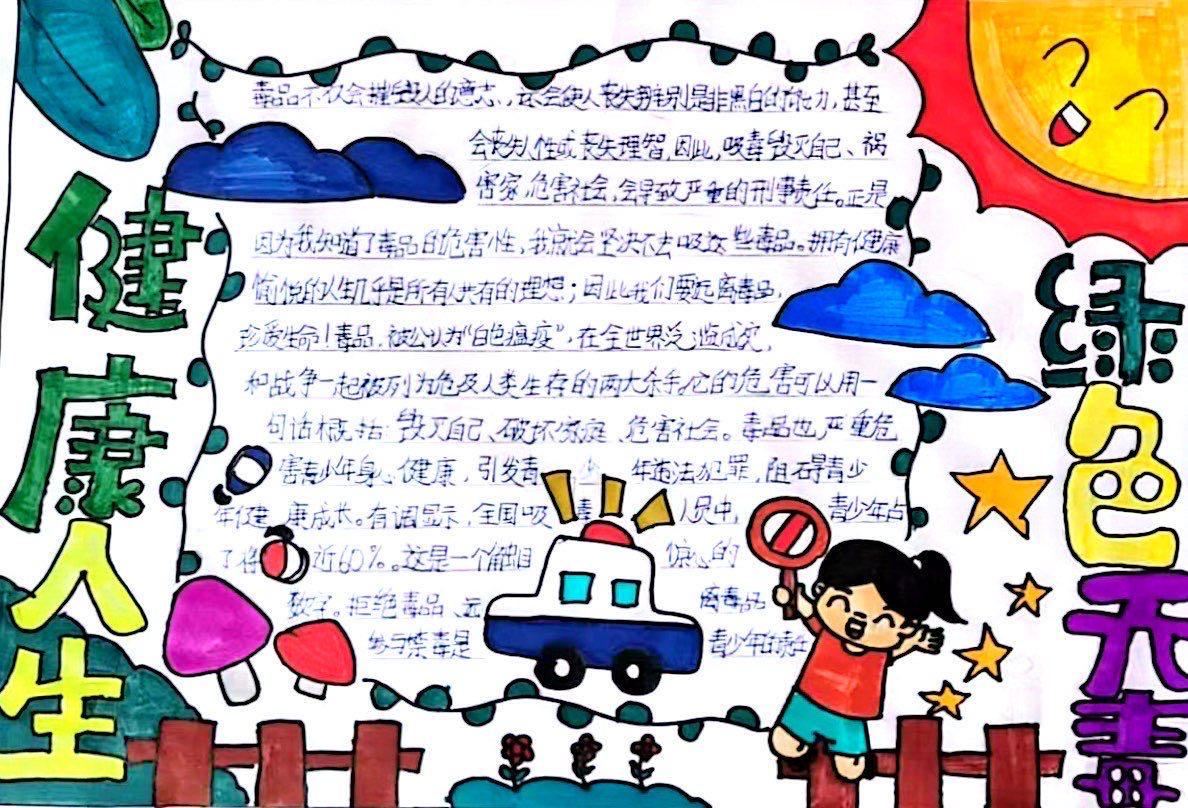 健康人生
绿色无毒
毒品不仅会摧毁人的意志、还会使人丧失辨别是非黑白的能力,甚至
会丧失人性或丧失理智,因此,吸毒毁灭自己、祸
害家,危害社会,会导致严重的刑事责任。正是
因为我知道了毒品的危害性,我就会坚决不去吸这些毒品。拥有健康
愉悦的人生几乎是所有人共有的理想;因此我们要远离毒品,
珍爱生命!毒品,被公认为“白色瘟疫”,在全世界泛滥成灾,
和战争一起被列为危及人类生存的两大杀手,它的危害可以用一
句话概括:毁灭自己、破坏家庭、危害社会。毒品也严重危
害青少年身心健康,引发青少年违法犯罪,阻碍青少
年健康成长。有调显示,全国吸毒人员中,青少年占
了将近60%。这是一个触目惊心的
数字。拒绝毒品、远离毒品
参与禁毒是青少年的责任